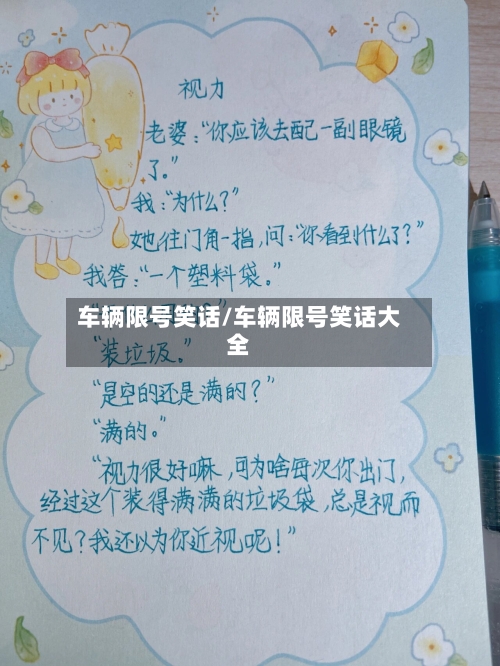 视力
老婆：“你应该去配一副眼镜
了。”
我：“为什么？”
她往门角一指，问：“你看到什么了？”
我答：“一个塑料袋。”
车辆限号笑话/车辆限号笑话大
全
“装垃圾。”
“是空的还是满的？”
“满的。”
“视力很好嘛，可为啥每次你出门，
经过这个装得满满的垃圾袋，总是视而
不见？我还以为你近视呢！”